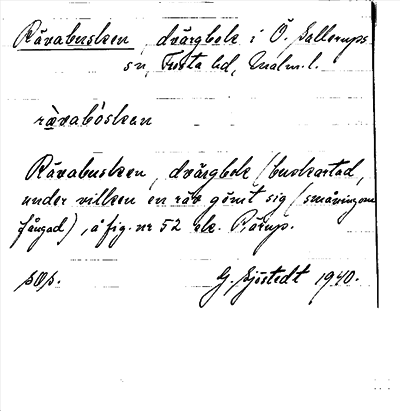 Rävabusken, dvärgbok i Ö. Sallerups
sn, Frosta hd, Malm. l.
rävabòskæn
Rävabusken, dvärgbok (buskartad,
under vilken en räv gömt sig (småningom
fångad), å fig. nr 52 ek. Rörup.
sOp.
G. Sjöstedt 1940.